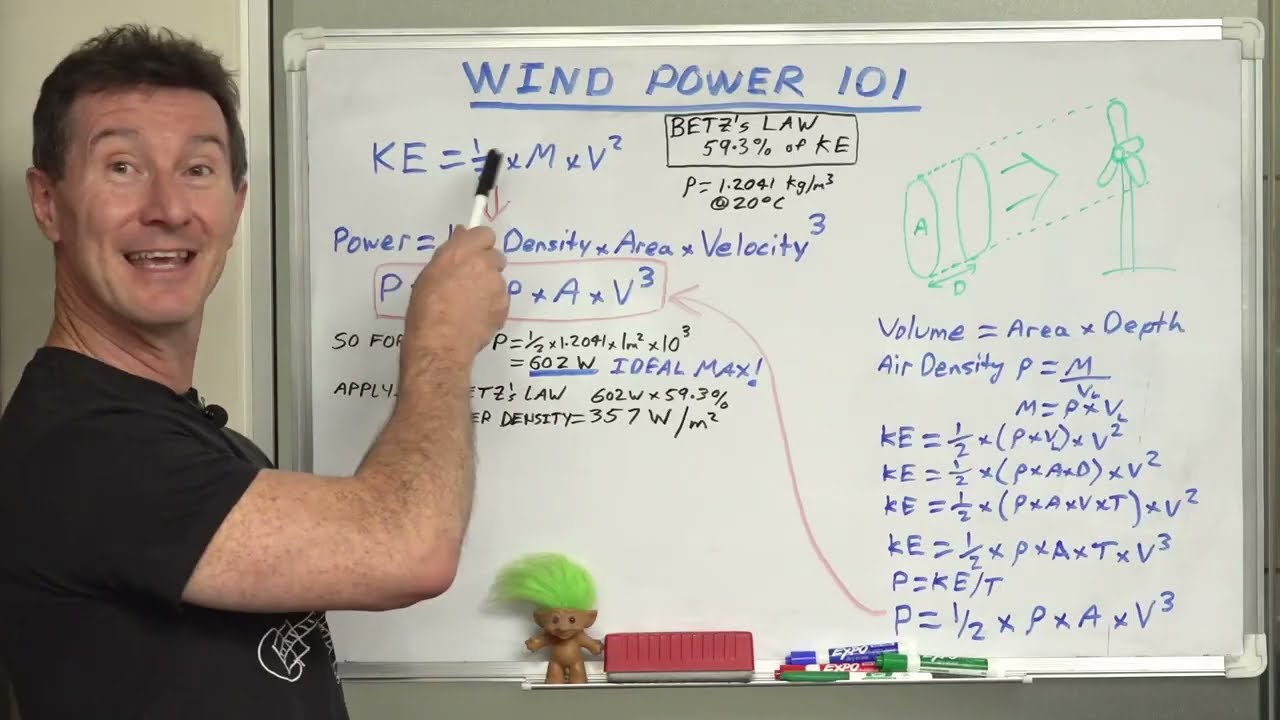 WIND POWER 101
KE = ½ × M × V²
BETZ's LAW
59.3% of KE
ρ = 1.2041 kg/m³
@ 20°C
Power = Density × Area × Velocity³
P ρ × A × V³
SO FOR P = ½ × 1.2041 × 1m² × 10³
= 602 W IDEAL MAX!
APPLY LAW 602W × 59.3%
DENSITY = 357 W/m²
A
D
Volume = Area × Depth
Air Density ρ = M/VL
M = ρ × VL
KE = ½ × (ρ × VL) × V²
KE = ½ × (ρ × A × D) × V²
KE = ½ × (ρ × A × V × T) × V²
KE = ½ × ρ × A × T × V³
P = KE/T
P = 1/2 × ρ × A × V³
EXPO
EXPO
EXPO